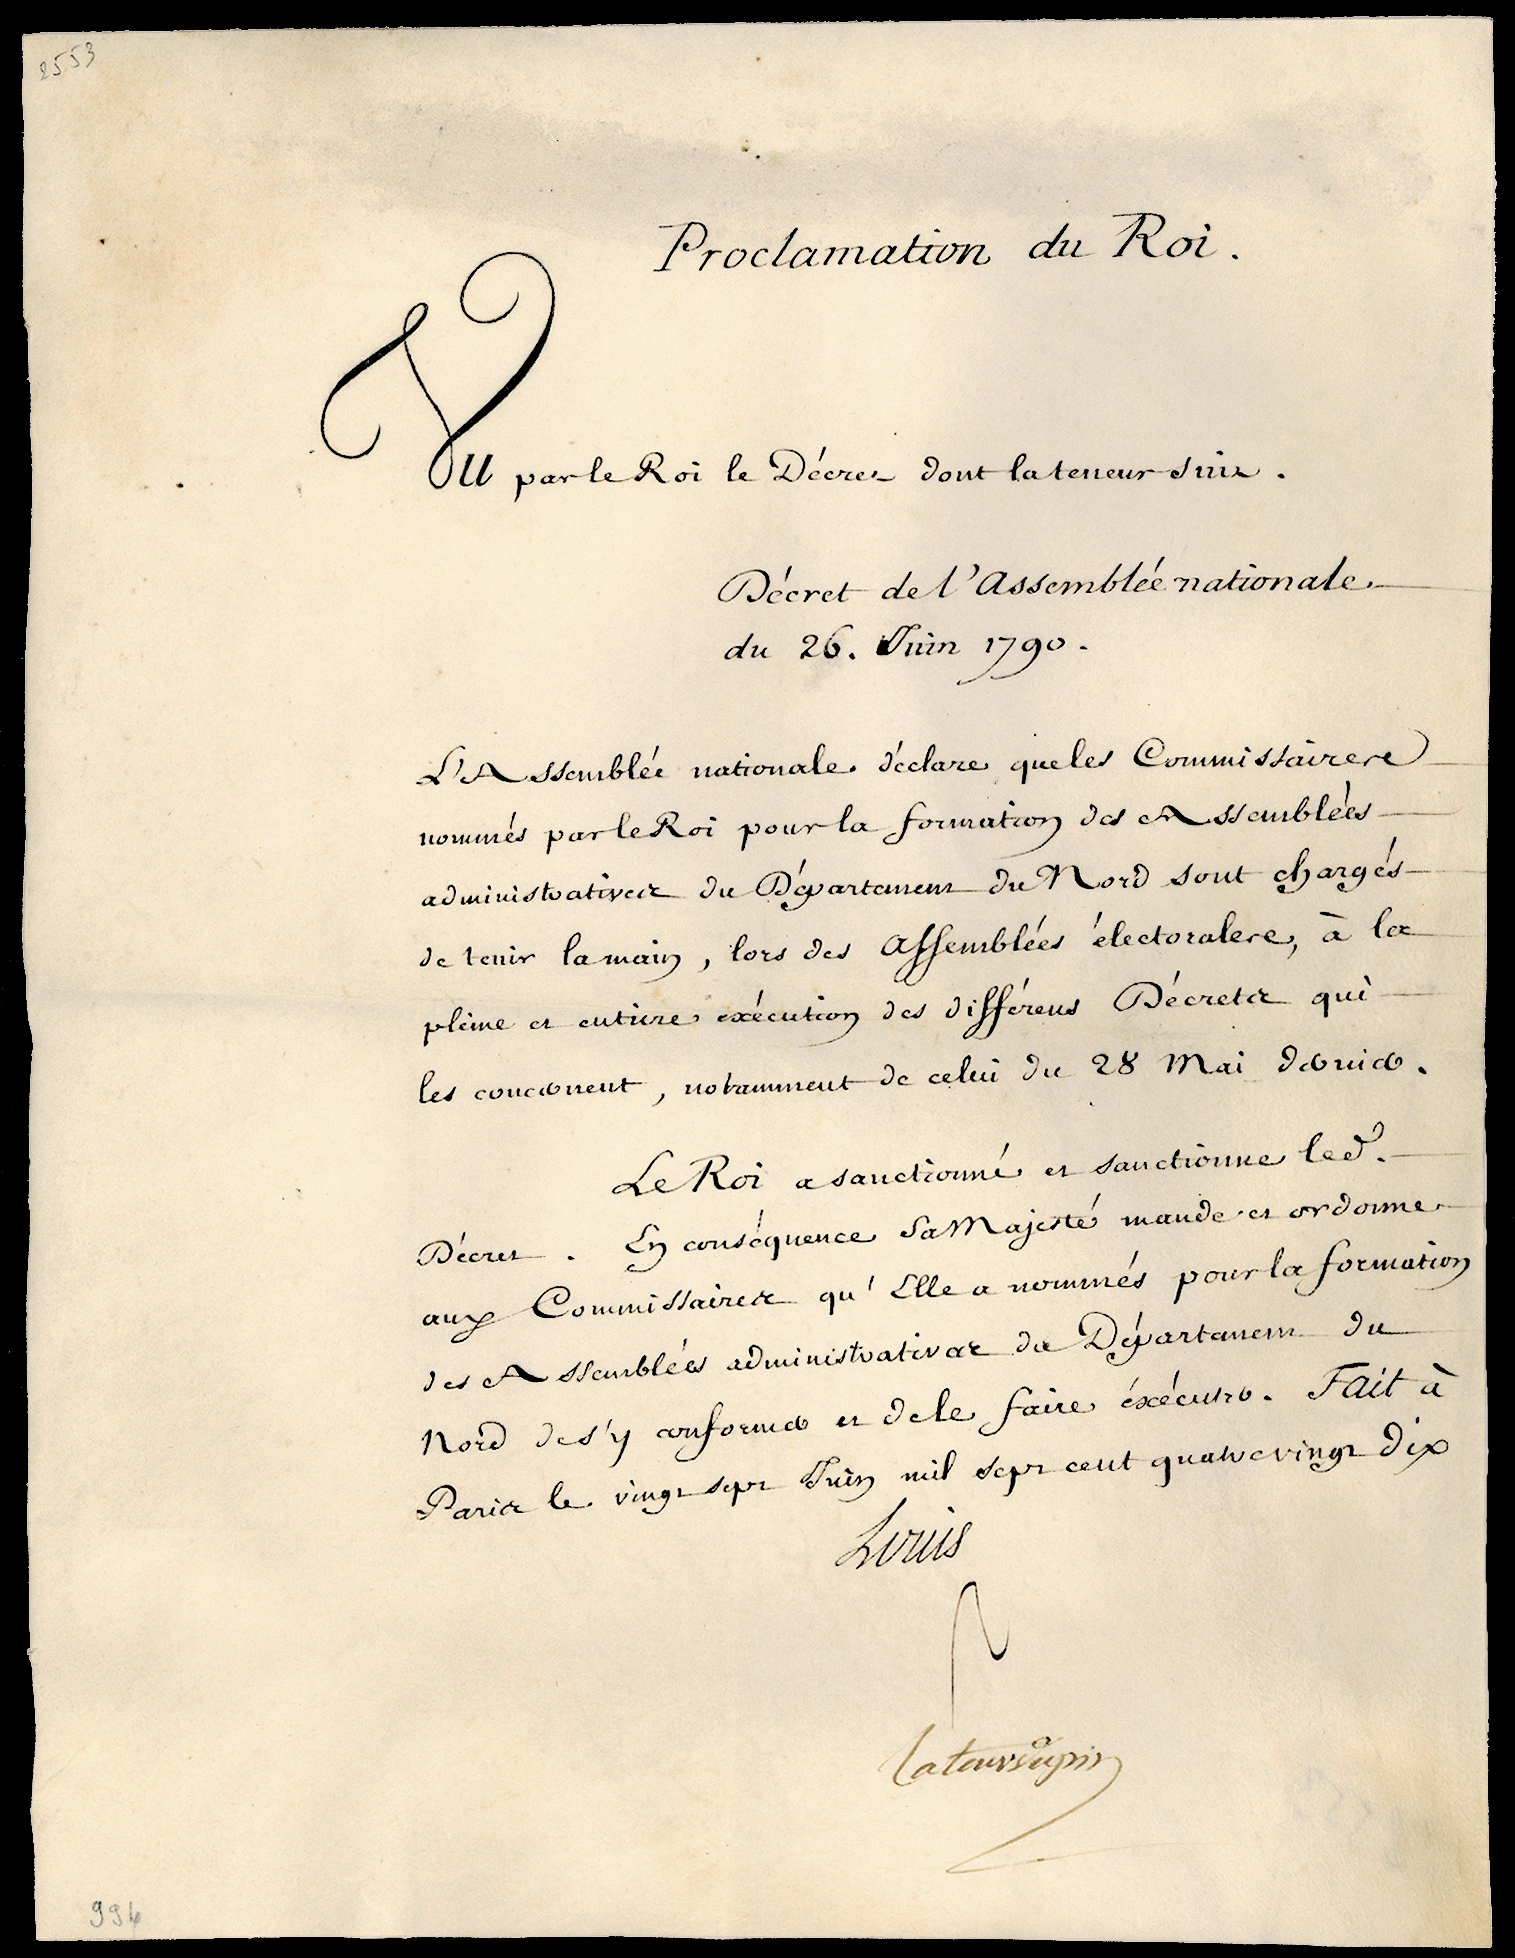 2553
Proclamation du Roi.
Vu par le Roi le Décret dont la teneur suit.
Décret de l'Assemblée nationale
du 26. Juin 1790.
L'Assemblée nationale déclare que les Commissaires
nommés par le Roi pour la formation des Assemblées
administratives du Département du Nord sont chargés
de tenir la main, lors des Assemblées électorales, à la
pleine et entiere exécution des différens Décrets qui
les concernent, notamment de celui du 28 Mai dernier.
Le Roi a sanctionné et sanctionne led.
Décret. En conséquence Sa Majesté mande et ordonne
aux Commissaires qu'Elle a nommés pour la formation
des Assemblées administratives du Département du
Nord de s'y conformer et de le faire éxécuter. Fait à
Paris le vingt sept Juin mil sept cent quatre vingt dix
Louis
Latourdupin
994